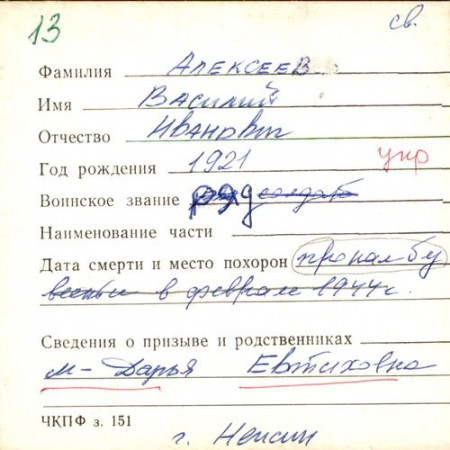 13
св.
Фамилия АЛЕКСЕЕВ
Имя ВАСИЛИЙ
Отчество ИВАНОВИЧ
Год рождения 1921
укр
Воинское звание ряд солдат
Наименование части
Дата смерти и место похорон пропал бу
вести в феврале 1944 г.
Сведения о призыве и родственниках
м - Дарья Евтиховна
ЧКПФ з. 151
г. Нежин